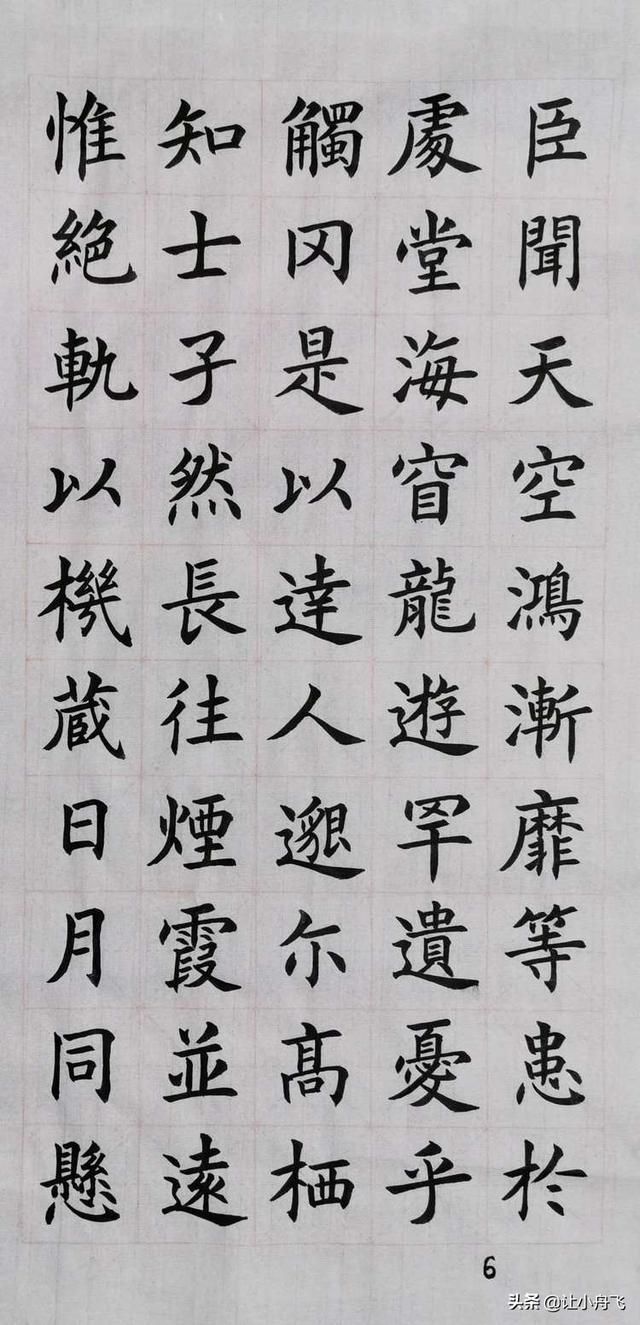 臣聞天空鴻漸靡等患於
處堂海窅龍遊罕遺憂乎
觸冈是以達人邈尓髙栖
知士子然長往煙霞並遠
惟絕軌以機蔵日月同懸
6
头条 @让小舟飞